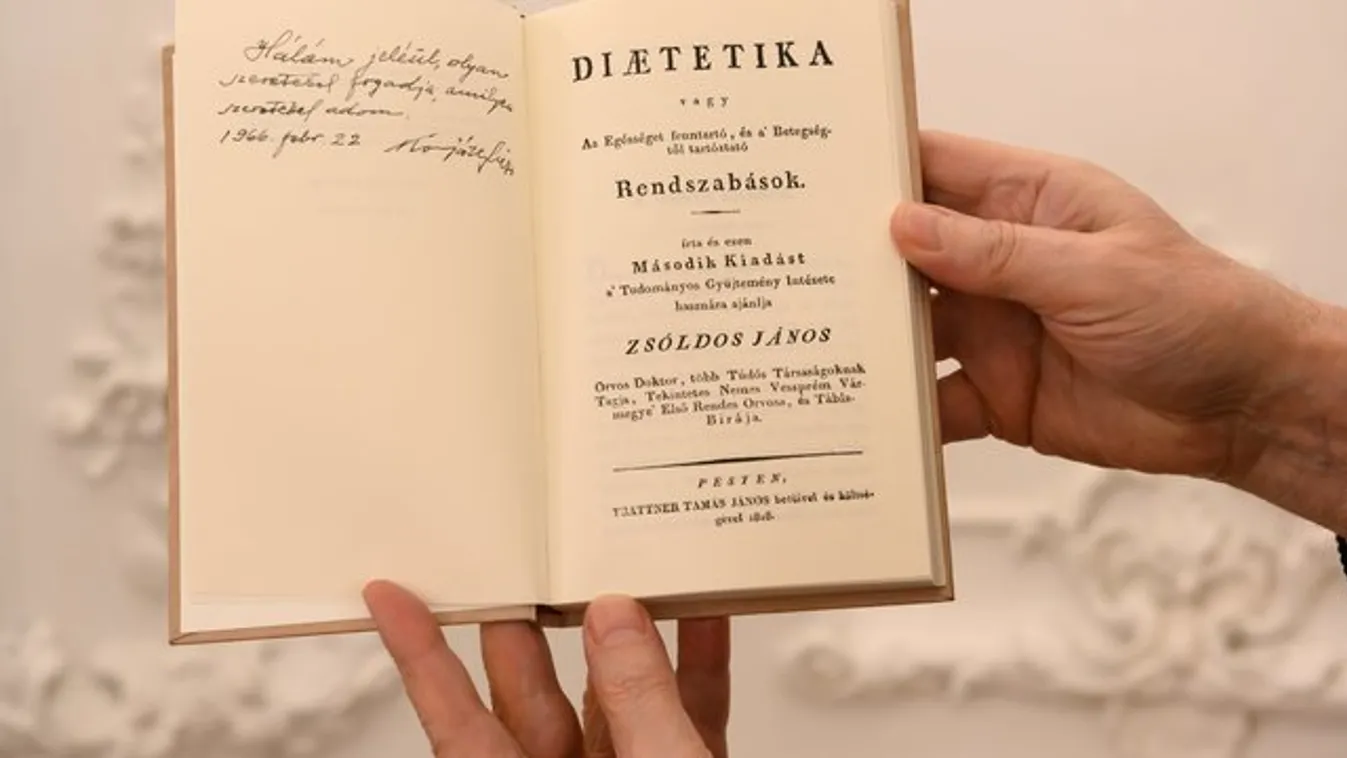 Hálám jeléül, olyan
szeretettel fogadja, amilyen
szeretettel adom.
1966. febr. 22
DIÆTETIKA
vagy
Az Egésséget fenntartó, és a' Betegség-
től tartóztató
Rendszabások.
írta és ezen
Második Kiadást
a' Tudományos Gyüjtemény Intézete
hasznára ajánlja
ZSÓLDOS JÁNOS
Orvos Doktor, több Túdós Társaságoknak
Tagja, Tekintetes Nemes Veszprém Vár-
megye' Első Rendes Orvosa, és Tábla-
Birája.
PESTEN,
TRATTNER TAMÁS JÁNOS betüivel és költsé-
gével 1818.